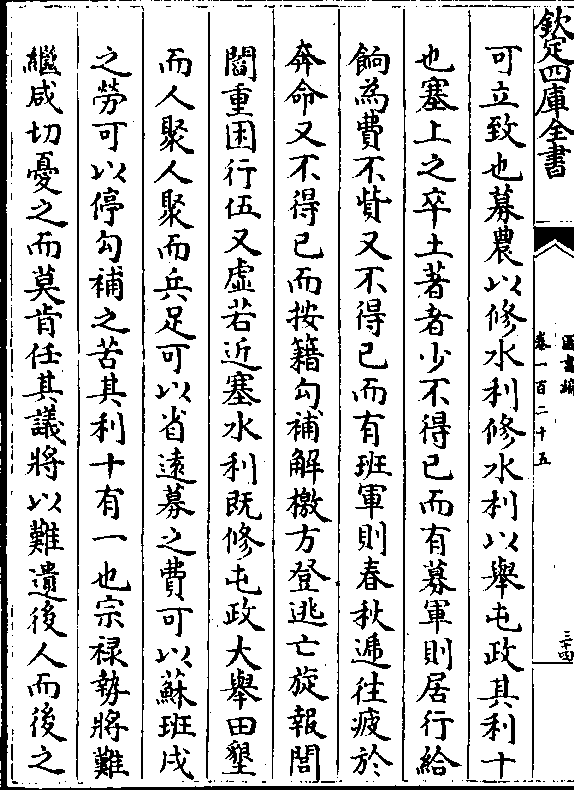 欽定四庫全書
圖書編
卷一百二十五
三十四
可立致也募農以修水利修水利以舉屯政其利十
也塞上之卒土著者少不得已而有募軍則居行給
餉為費不貲又不得已而有班軍則春秋遞往疲於
奔命又不得已而按籍勾補解檄方登逃亡旋報閭
閻重困行伍又虛若近塞水利既修屯政大舉田墾
而人聚人聚而兵足可以省遠募之費可以蘇班戍
之勞可以停勾補之苦其利十有一也宗禄勢將難
繼咸切憂之而莫肯任其議將以難遺後人而後之